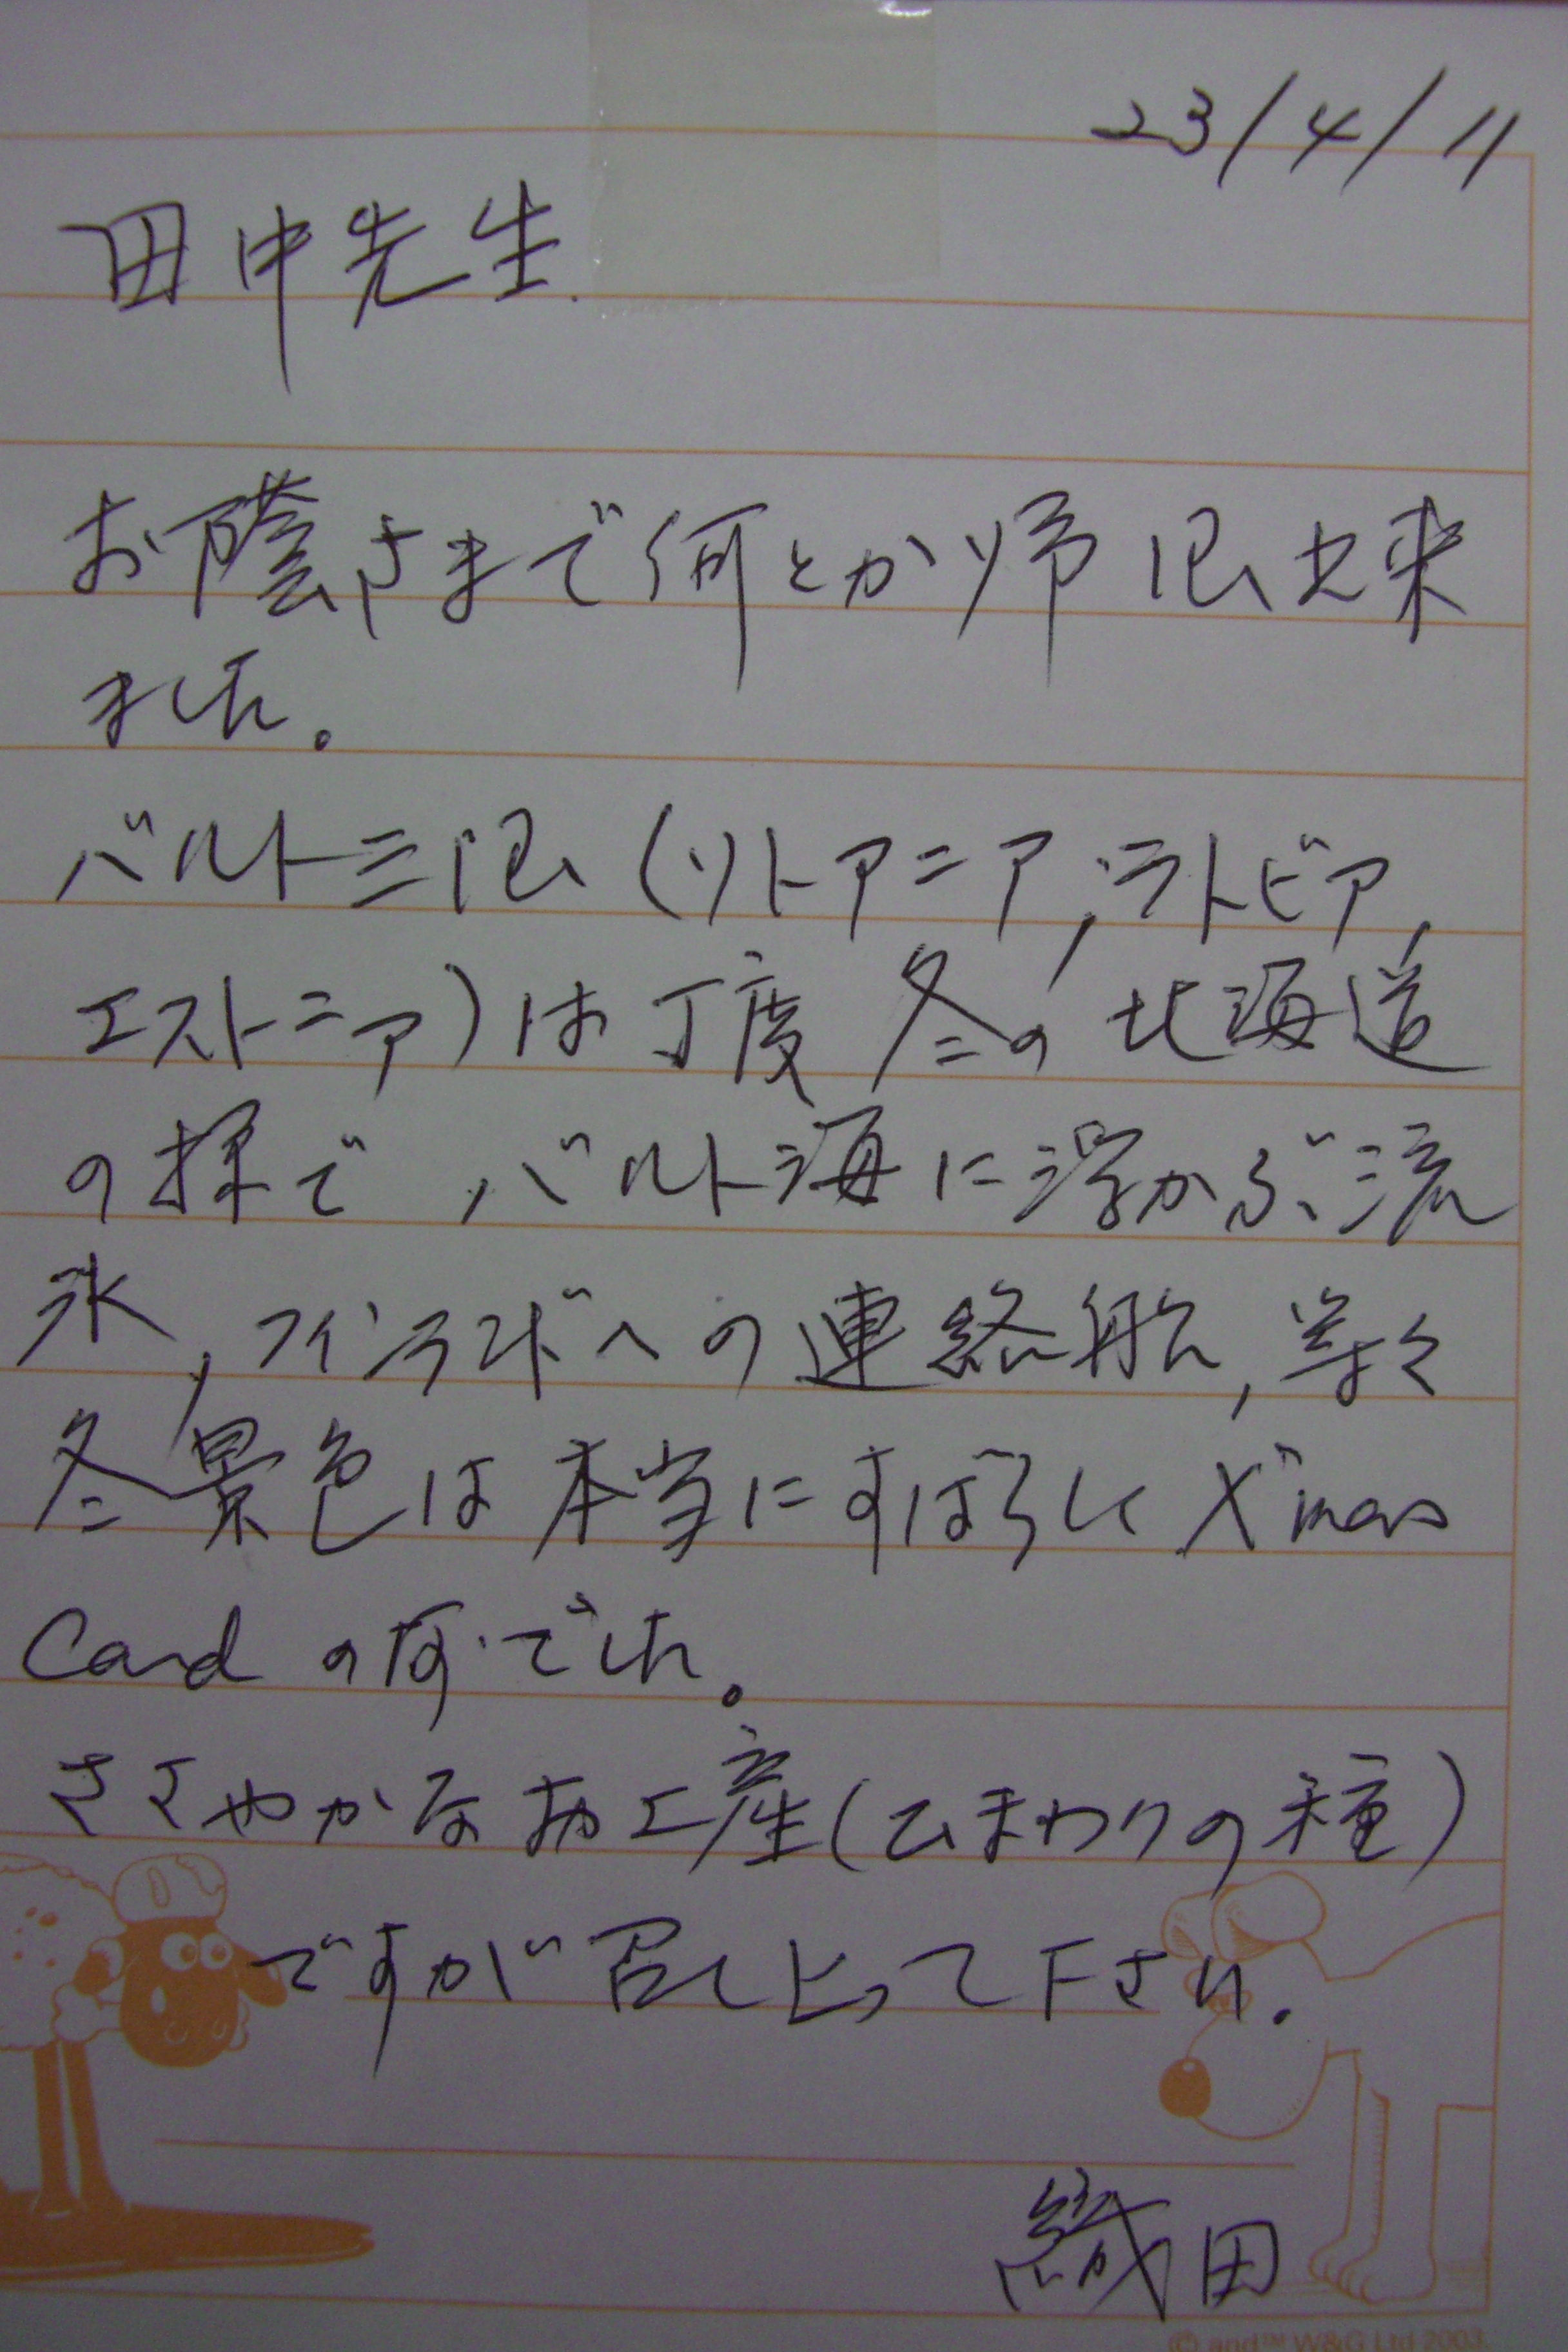 23/4/11
田中先生
お蔭さまで何とか帰国出来
ました。
バルト三国(リトアニア,ラトビア,
エストニア)は丁度冬の北海道
の様で,バルト海に浮かぶ流
氷,フィンランドへの連絡船,等々
冬景色は本当にすばらしく X'mas
Card の様でした。
ささやかなお土産(ひまわりの種)
ですが召し上って下さい.
織田
© and™ W&G Ltd 2003